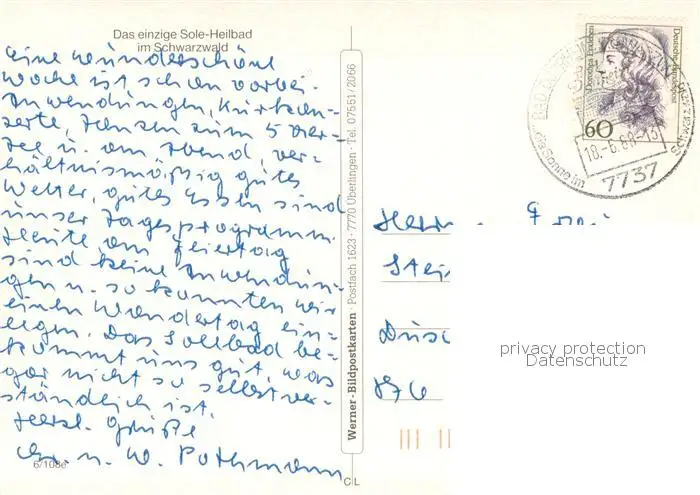 Das einzige Sole-Heilbad
im Schwarzwald
eine wunderschöne
Woche ist schon vorbei.
Anwendungen, Kurkon-
zerte, Tanzen zum 5 Uhr-
tee u. am Abend, ver-
hältnismäßig gutes
Wetter, gutes Essen sind
unser Tagesprogramm.
Heute am Feiertag
sind keine Anwendun-
gen u. so konnten wir
einen Wandertag ein-
legen. Das Solebad be-
kommt uns gut, was
gar nicht so selbstver-
ständlich ist.
Herzl. Grüße
u. W. Pothmann
6/108e
Werner-Bildpostkarten · Postfach 1623 · 7770 Überlingen · Tel. 07551/2066
CL
Deutsche Bundespost
Dorothea Erxleben
60
die Sonne im Schwarzwald
18.-6.88-13
7737
Herrn
Stei
Düss
privacy protection
Datenschutz